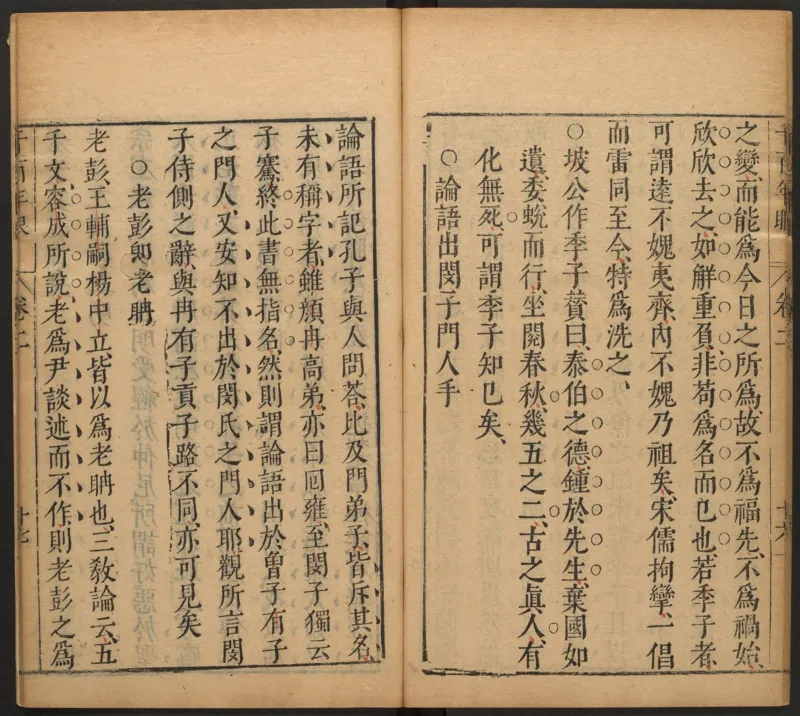 之變而能爲今日之所爲故不爲福先不爲禍始
欣欣去之如解重負非苟爲名而已也若季子者
可謂遠不媿夷齊內不媿乃祖矣宋儒拘攣一倡
而雷同至今特爲洗之
○坡公作季子贊曰泰伯之德鍾於先生棄國如
遺委蛻而行坐閱春秋幾五之二古之眞人有
化無死可謂季子知已矣
○論語出閔子門人手
論語所記孔子與人問荅比及門弟子皆斥其名
未有稱字者雖顏冉高弟亦曰回雍至閔子獨云
子騫終此書無指名然則謂論語出於曾子有子
之門人又安知不出於閔氏之門人耶觀所言閔
子侍側之辭與冉有子貢子路不同亦可見矣
○老彭卽老聃
老彭王輔嗣楊中立皆以爲老聃也三敎論云五
千文容成所說老爲尹談述而不作則老彭之爲
卷二
十七
卷二
十六